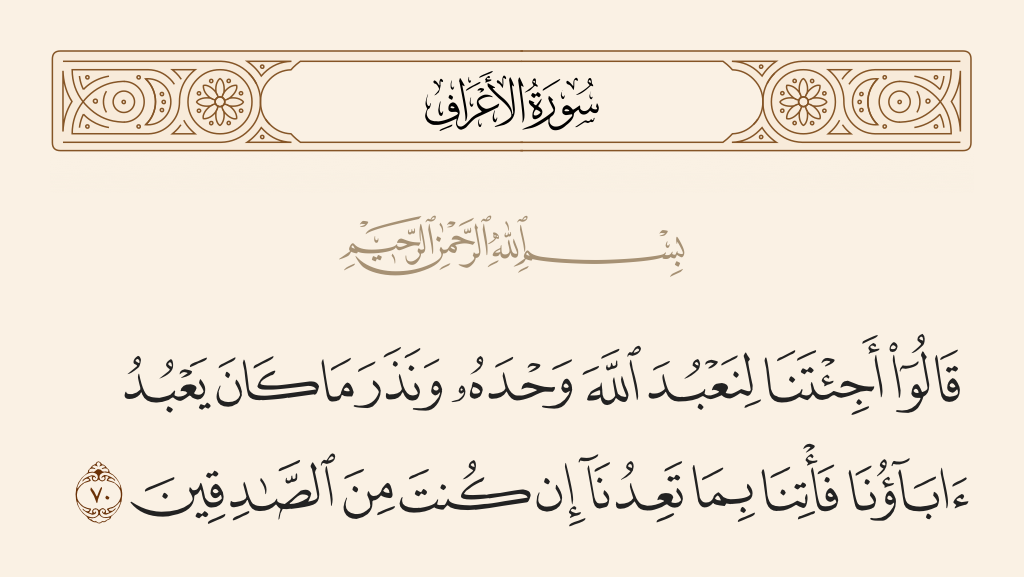 سُورَةُ الأَعْرَافِ
بِسْمِ ٱللَّهِ ٱلرَّحْمَٰنِ ٱلرَّحِيمِ
قَالُوٓا۟ أَجِئْتَنَا لِنَعْبُدَ ٱللَّهَ وَحْدَهُۥ وَنَذَرَ مَا كَانَ يَعْبُدُ
ءَابَآؤُنَا فَأْتِنَا بِمَا تَعِدُنَآ إِن كُنتَ مِنَ ٱلصَّـٰدِقِينَ ٧٠